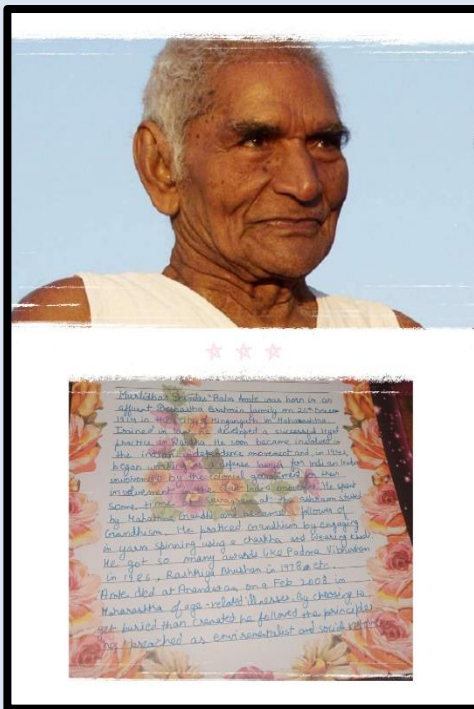 Murlidhar Devidas "Baba Amte was born in an
affluent Deshastha Brahmin family on 26th Dec
1914 in the city of Hinganghat in Maharashtra
Trained in law he developed a successful legal
practice in Wardha. He soon became involved in
the Indian independence movement and in 1942,
began working as a defense lawyer for Indian leaders
imprisoned by the colonial government for their
involvement in the Quit India movement. He spent
some time at Sevagram at the ashram started
by Mahatma Gandhi and became a follower of
Gandhism. He practiced Gandhism by engaging
in yarn spinning using a charkha and wearing khadi.
He got so many awards like Padma Vibhushan
in 1986, Rashtriya Bhushan in 1978 etc
Amte died at Anandwan on 9 Feb 2008 in
Maharashtra of age-related illnesses. By choosing to
get buried than cremated he followed the principles
he preached as environmentalist and social